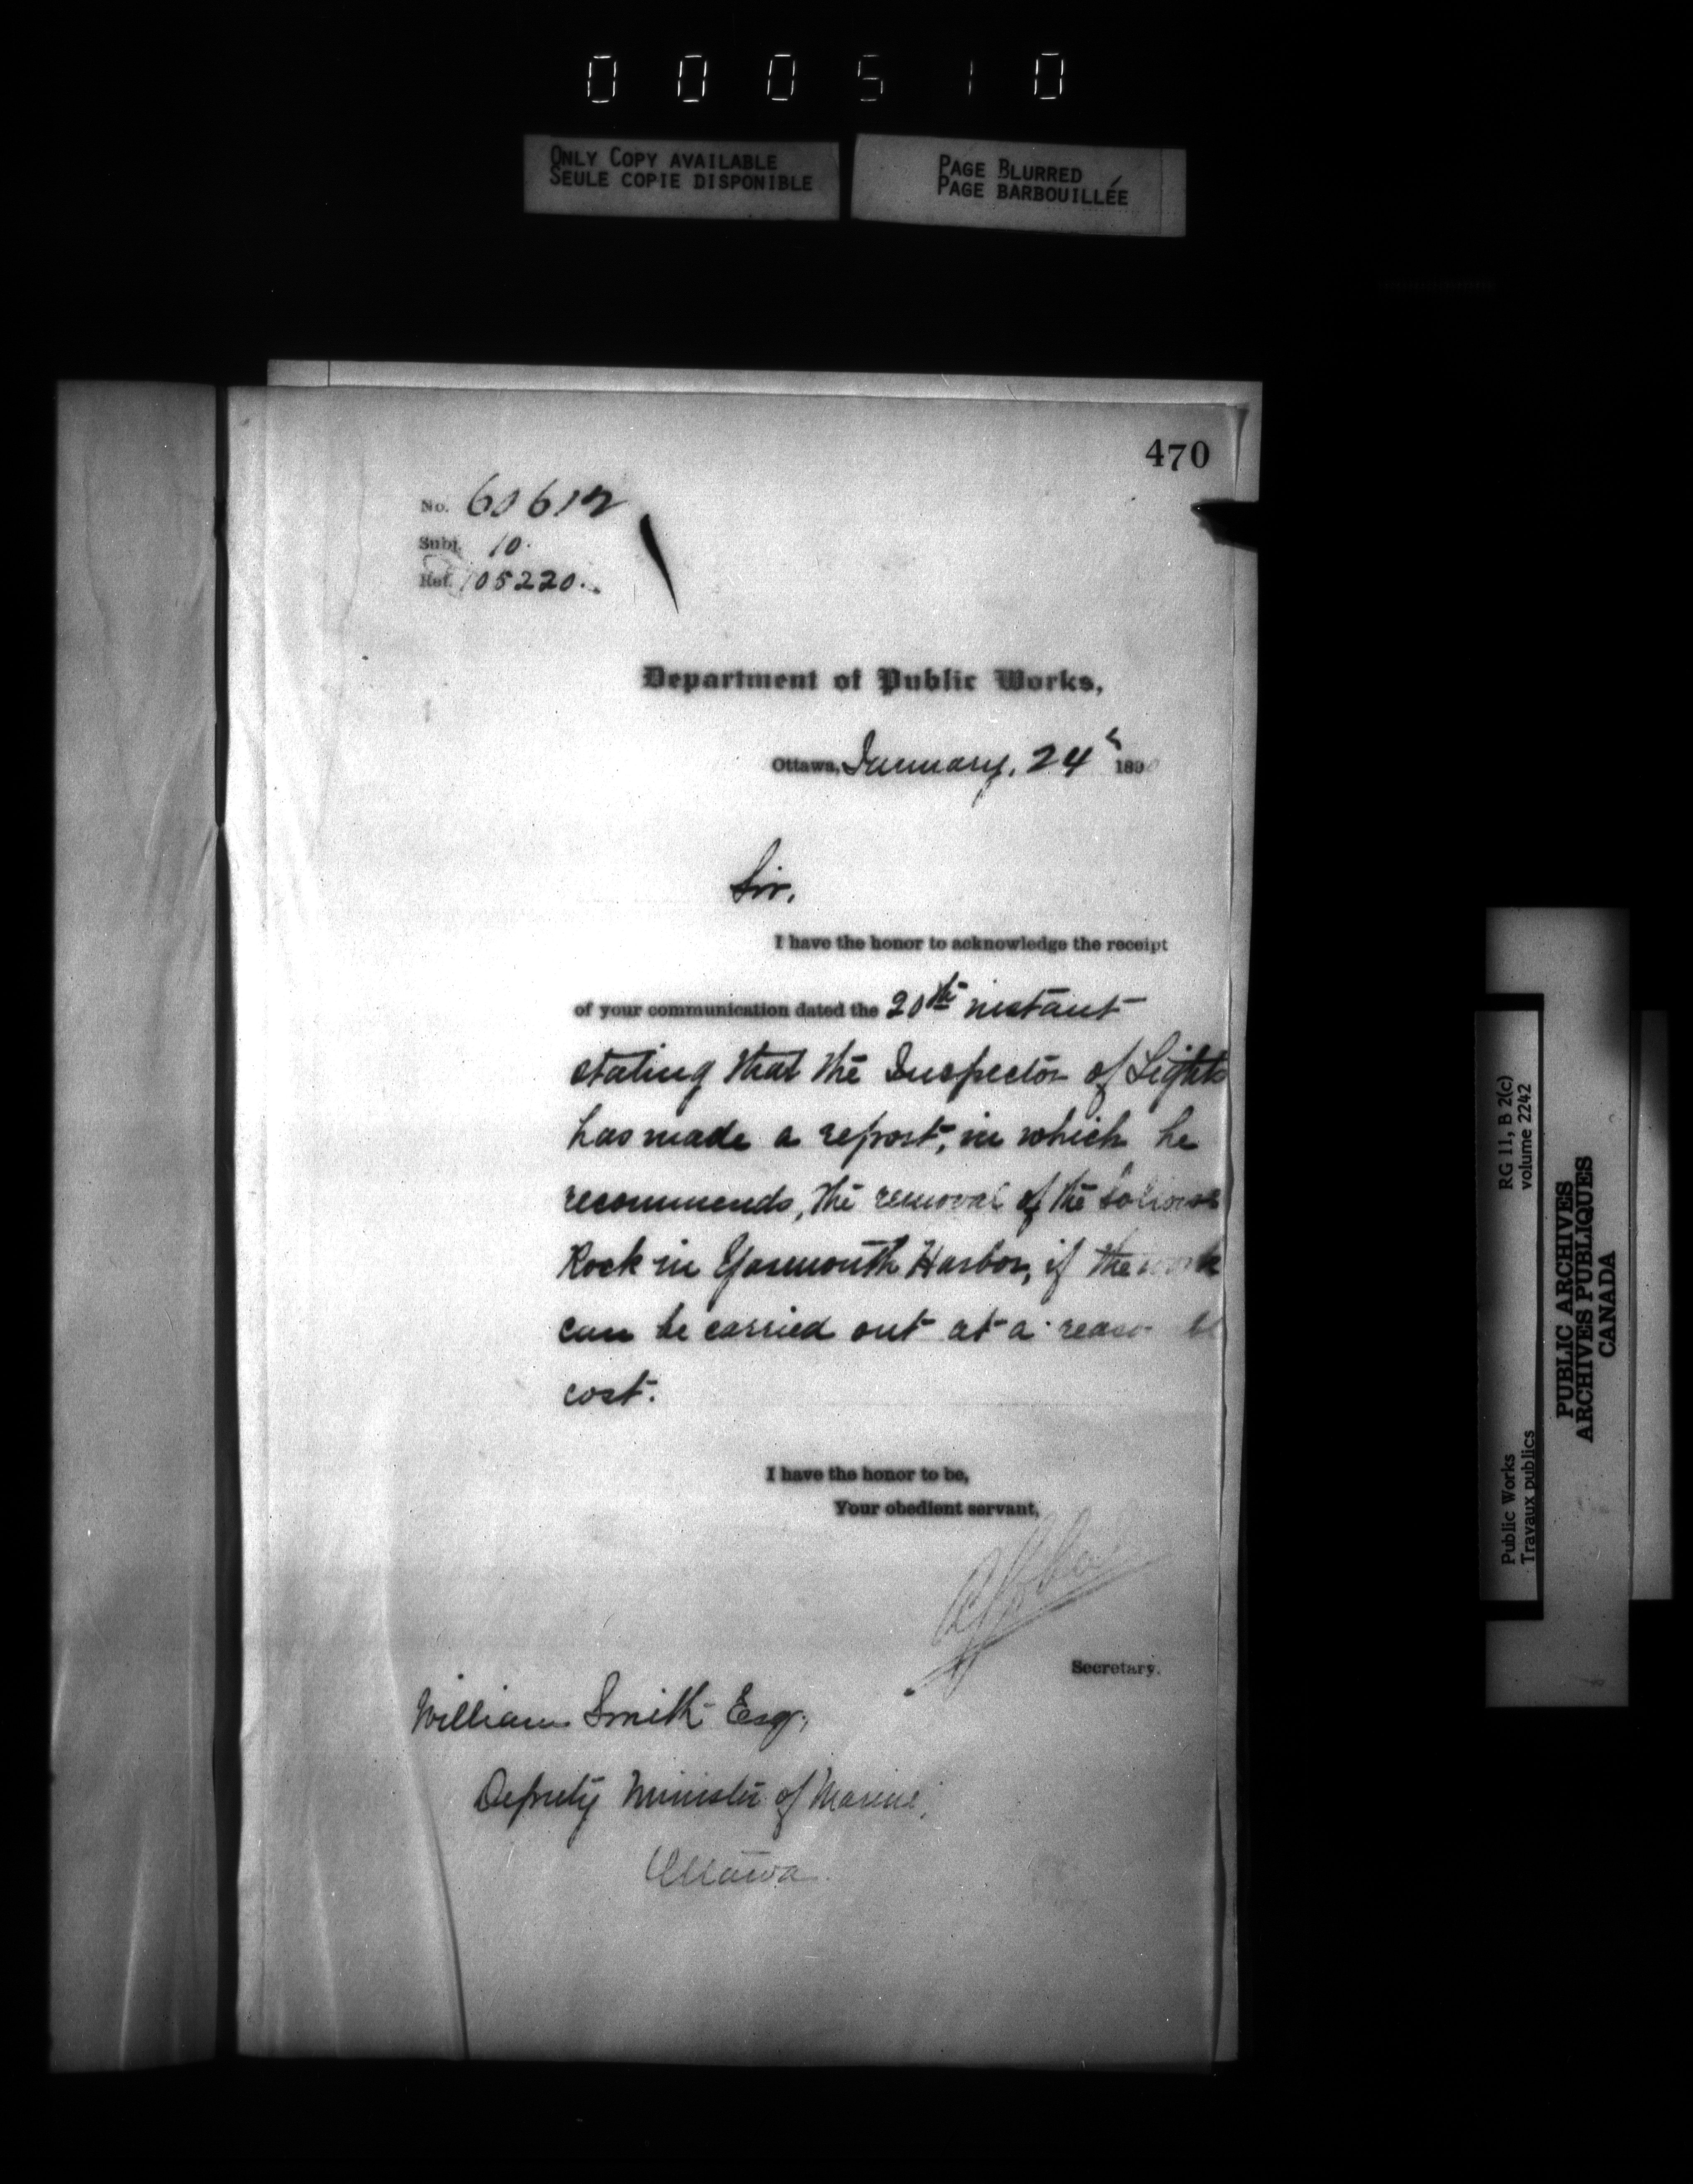 000510
ONLY COPY AVAILABLE
SEULE COPIE DISPONIBLE
PAGE BLURRED
PAGE BARBOUILLÉE
470
No.
Subj. 10.
Ref. 105220.
Department of Public Works,
Ottawa, January, 24 189
Sir,
I have the honor to acknowledge the receipt
of your communication dated the 20th instant
stating that the Inspector of Lights
has made a report, in which he
recommends, the removal of the
Rock in Yarmouth Harbor, if the work
can be carried out at a
cost.
I have the honor to be,
Your obedient servant,
Secretary.
William Smith Esqr,
Deputy Minister of Marine,
Ottawa.
RG 11, B 2(c)
volume 2242
Public Works
Travaux publics
PUBLIC ARCHIVES
ARCHIVES PUBLIQUES
CANADA